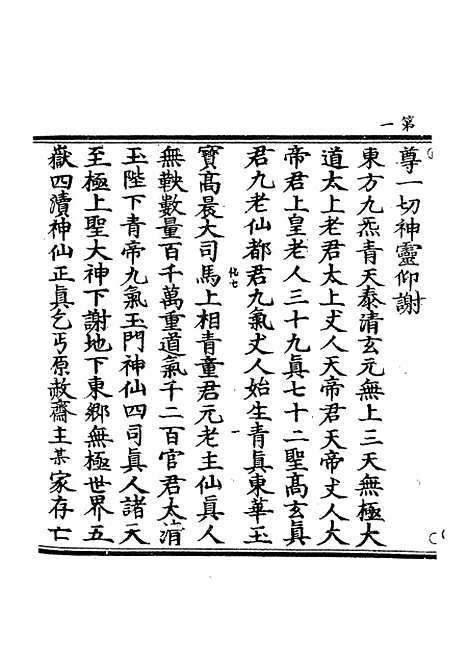 第一
尊一切神靈仰謝
東方九炁青天泰清玄元無上三天無極大
道太上老君太上丈人天帝君天帝丈人大
帝君上皇老人三十九眞七十二聖高玄眞
君九老仙都君九氣丈人始生青眞東華玉
寳髙晨大司馬上相青童君元老主仙眞人
無鞅數量百千萬重道氣千二百官君太清
玉陛下青帝九氣玉門神仙四司眞人諸天
至極上聖大神下謝地下東郷無極世界五
嶽四瀆神仙正眞乞丐原赦齋主某家存亡
化七
一